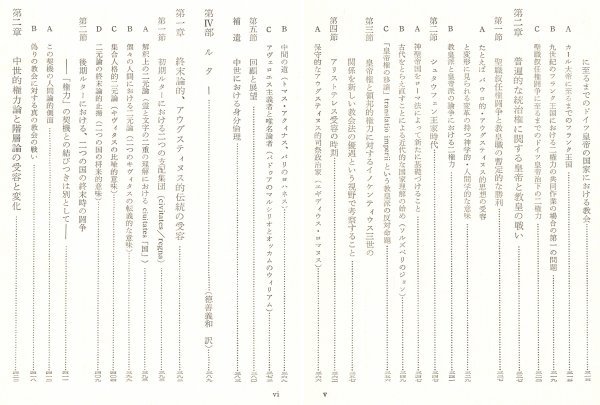 に至るまでのドイツ皇帝の国家における教会
A カール大帝に至るまでのフランク王国
B 九世紀のフランク王国における二権力の共同作業の場合の第一の問題
C 聖職叙任権闘争に至るまでのドイツ皇帝治下の二権力
第二章 普遍的な統治権に関する皇帝と教皇の戦い
第一節 聖職叙任権闘争と教皇職の暫定的な勝利
A たとえば、パウロ的・アウグスティヌス的思想の受容
と変形に見られる変革の持つ神学的・人間学的な意味
B 教皇派と皇帝派の論争における二権力
第二節 シュタウフェン王家時代
A 神聖帝国をローマ法によって新たに基礎づけること
B 古代をとらえ直すことによる近代的な国家理解の始め(ソルズベリのジョン)
C 「皇帝権の移譲」translatio imperii という教皇派の反対命題
第三節 皇帝権と領邦的権力に対するイノケンティウス三世の
関係を新しい教会法の優遇という視野で考察すること
第四節 アリストテレス受容の時期
A 保守的なアウグスティヌス的司祭政治家(エギディウス・ロマヌス)
v
B 中間の道(トマス・アクィナス、パリのヨハネス)
C アヴェロエス主義者と唯名論者(パドヴァのマルシリオとオッカムのウィリアム)
第五節 回顧と展望
補遺 中世における身分倫理
第Ⅳ部 ルター
(徳善義和 訳)
第一章 終末論的、アウグスティヌス的伝統の受容
第一節 初期ルターにおける二つの支配集団(civitates/regna)
A 解釈上の二元論(霊と文字の二重の理解における civitates「国」)
B 個々の人間における二元論(二つのキヴィタスの転義的な意味)
C 集合人格的二元論(キヴィタスの比喩的意味)
D 二元論の終末論的止揚(二つの国の将来的意味)
第二節 後期ルターにおける、二つの国の終末時の闘争
――「権力」の契機との結びつきは別として――
A この契機の人間論的側面
B 偽りの教会に対する真の教会の戦い
第二章 中世的権力論と階層論の受容と変化
vi